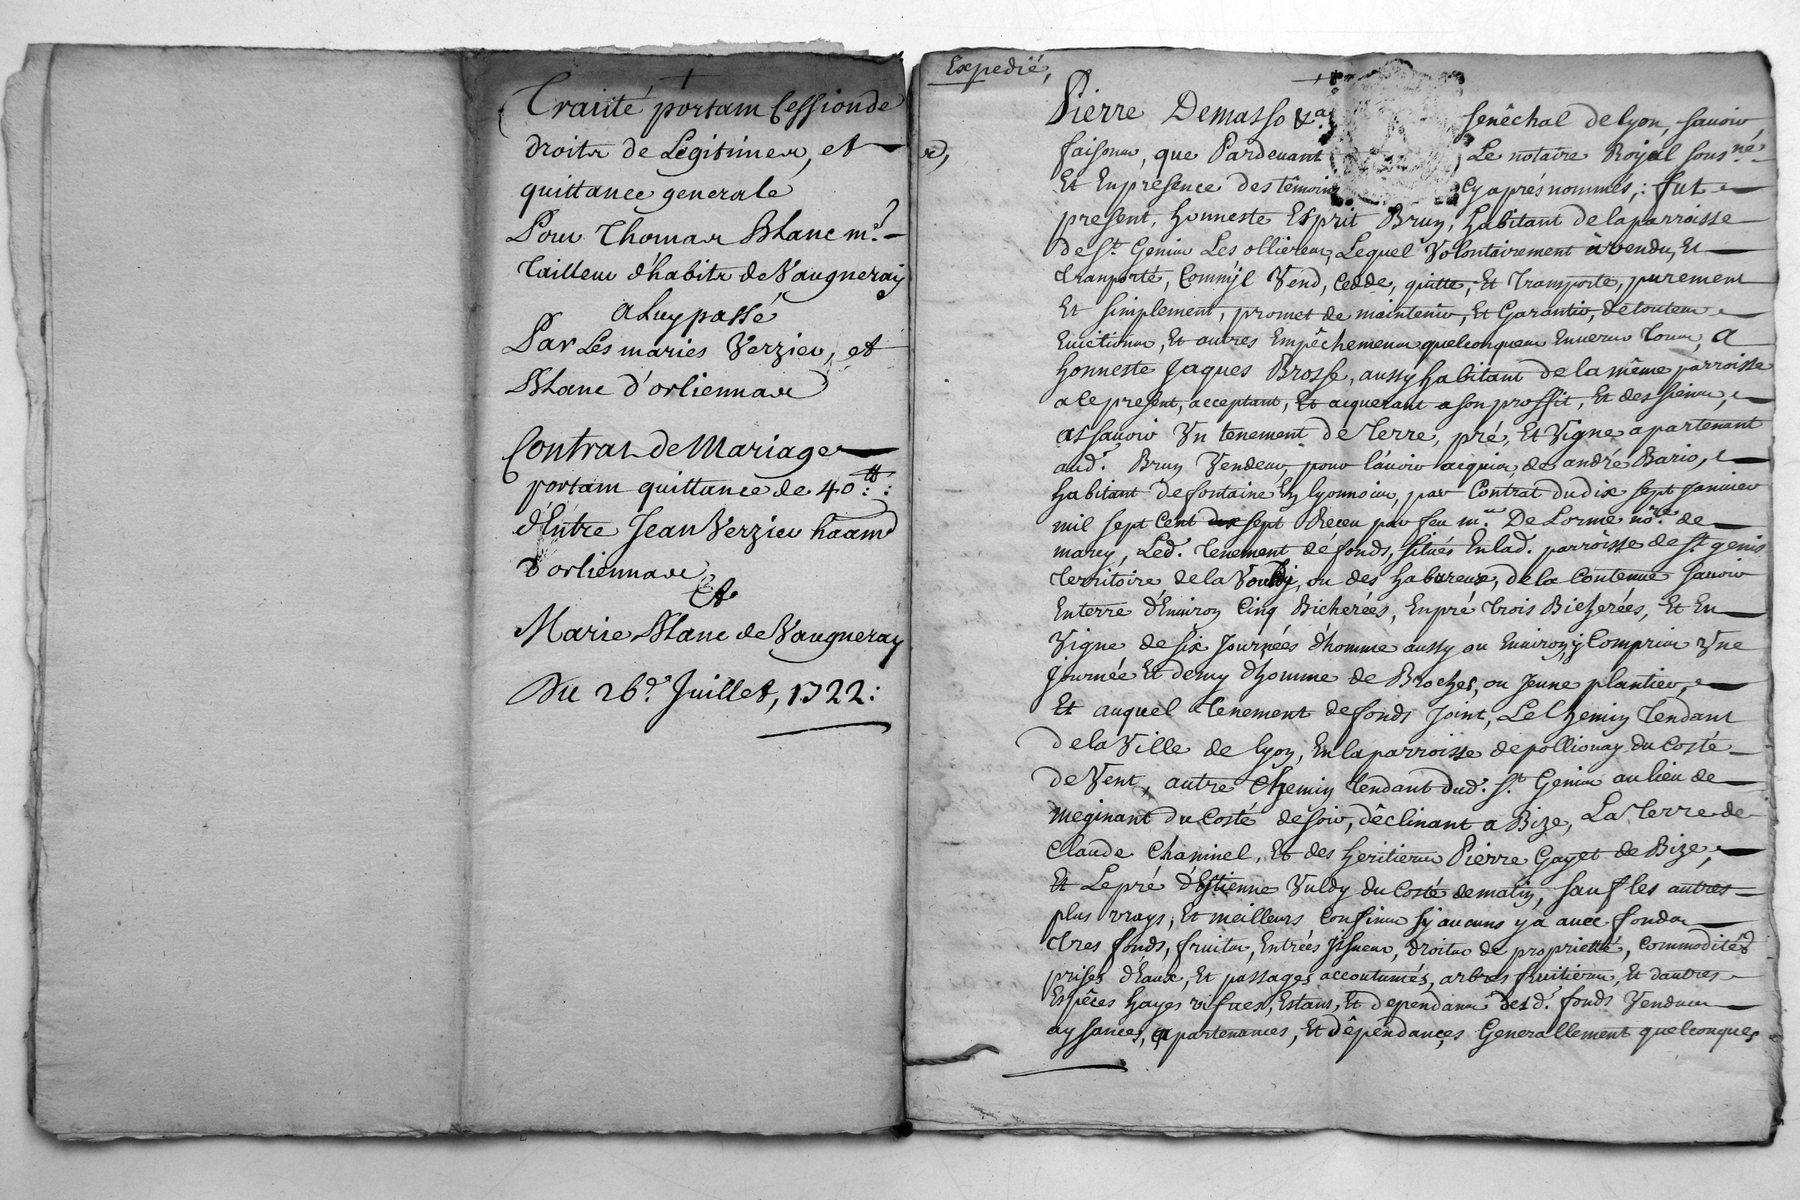 Traitté portant Cession de
droits de Légitimes, et
quittance generale
Pour Thomas Blanc me.
Tailleur d'habits de Vaugneray
a Luy passé
Par Les mariés Verzieu, et
Blanc d'orliennas
Contrat de Mariage
portant quittance de 40 tt::
d'Entre Jean Verzieu
d'orliennas
Et
Marie Blanc de Vaugneray
Du 26e. Juillet, 1722:
Expedié,
Pierre Demasso &a. Senêchal de lyon, sauoir
faisons, que Pardeuant Le notaire Royal sousné
Et Enpresence des têmoins Cy aprés nommés,: fut
present, honneste Esprit Brun, habitant de la parroisse
de st. Genis Les ollieres, Lequel Volontairement a vendu, Et
tranporté, Comm'jl Vend, Cedde, quitte, Et transporte, purement
Et simplement, promet de maintenir, Et Garantir, de toutes
Euictions, Et autres Empêchemens quelconques Enuers tous, A
honneste Jaques Brosse, aussy habitant de la même parroisse
a ce present, acceptant, Et aiquerant a son proffit, Et des siens,
assauoir Un tenement de terre, pré, Et Vigne apartenant
aud. Brun Vendeur, pour l'auoir aiquis, de andré Bario,
habitant de fontaine En lyonnois, par Contrat du dix sept Januier
mil sept Cent sept Receu par feu me. De Lorme nore. de
marcy, Led. tenement de fonds, situés En lad. parroisse de st. genis
territoire de la ou des habureux, de la Contenue sauoir
En terre d'Enuiron Cinq Bicherées, En pré trois Bicherées, Et En
Vigne de six Journées d'homme aussy ou Enuiron, y Compris Vne
Journée Et demy d'homme de Broches, ou Jeune plantier,
Et auquel tenement de fonds Joint, Le Chemin tendant
De la Ville de lyon, En la parroisse de pollionay du Costé
de Vent, autre Chemin tendant dud. st. Genis au lieu de
meginant du Costé de soir, déclinant a Bize, La terre de
Claude Chaninel, Et des heritiers Pierre Gayet de Bize,
Et Le pré d'Estienne Vuldy du Costé de matin, sauf les autres
plus vrays, Et meilleurs Confins sy aucuns y a auec fonds
tres fonds, fruits, Entrées Jssues, droits de proprietté, Commodités
prises d'Eaux, Et passages accoutumés, arbres fruitiers, Et d'autres
Espêces hayes vifues, Estans, Et dependans desd. fonds Vendus
aysances, apartenances, Et dêpêndances Generallement quelconques